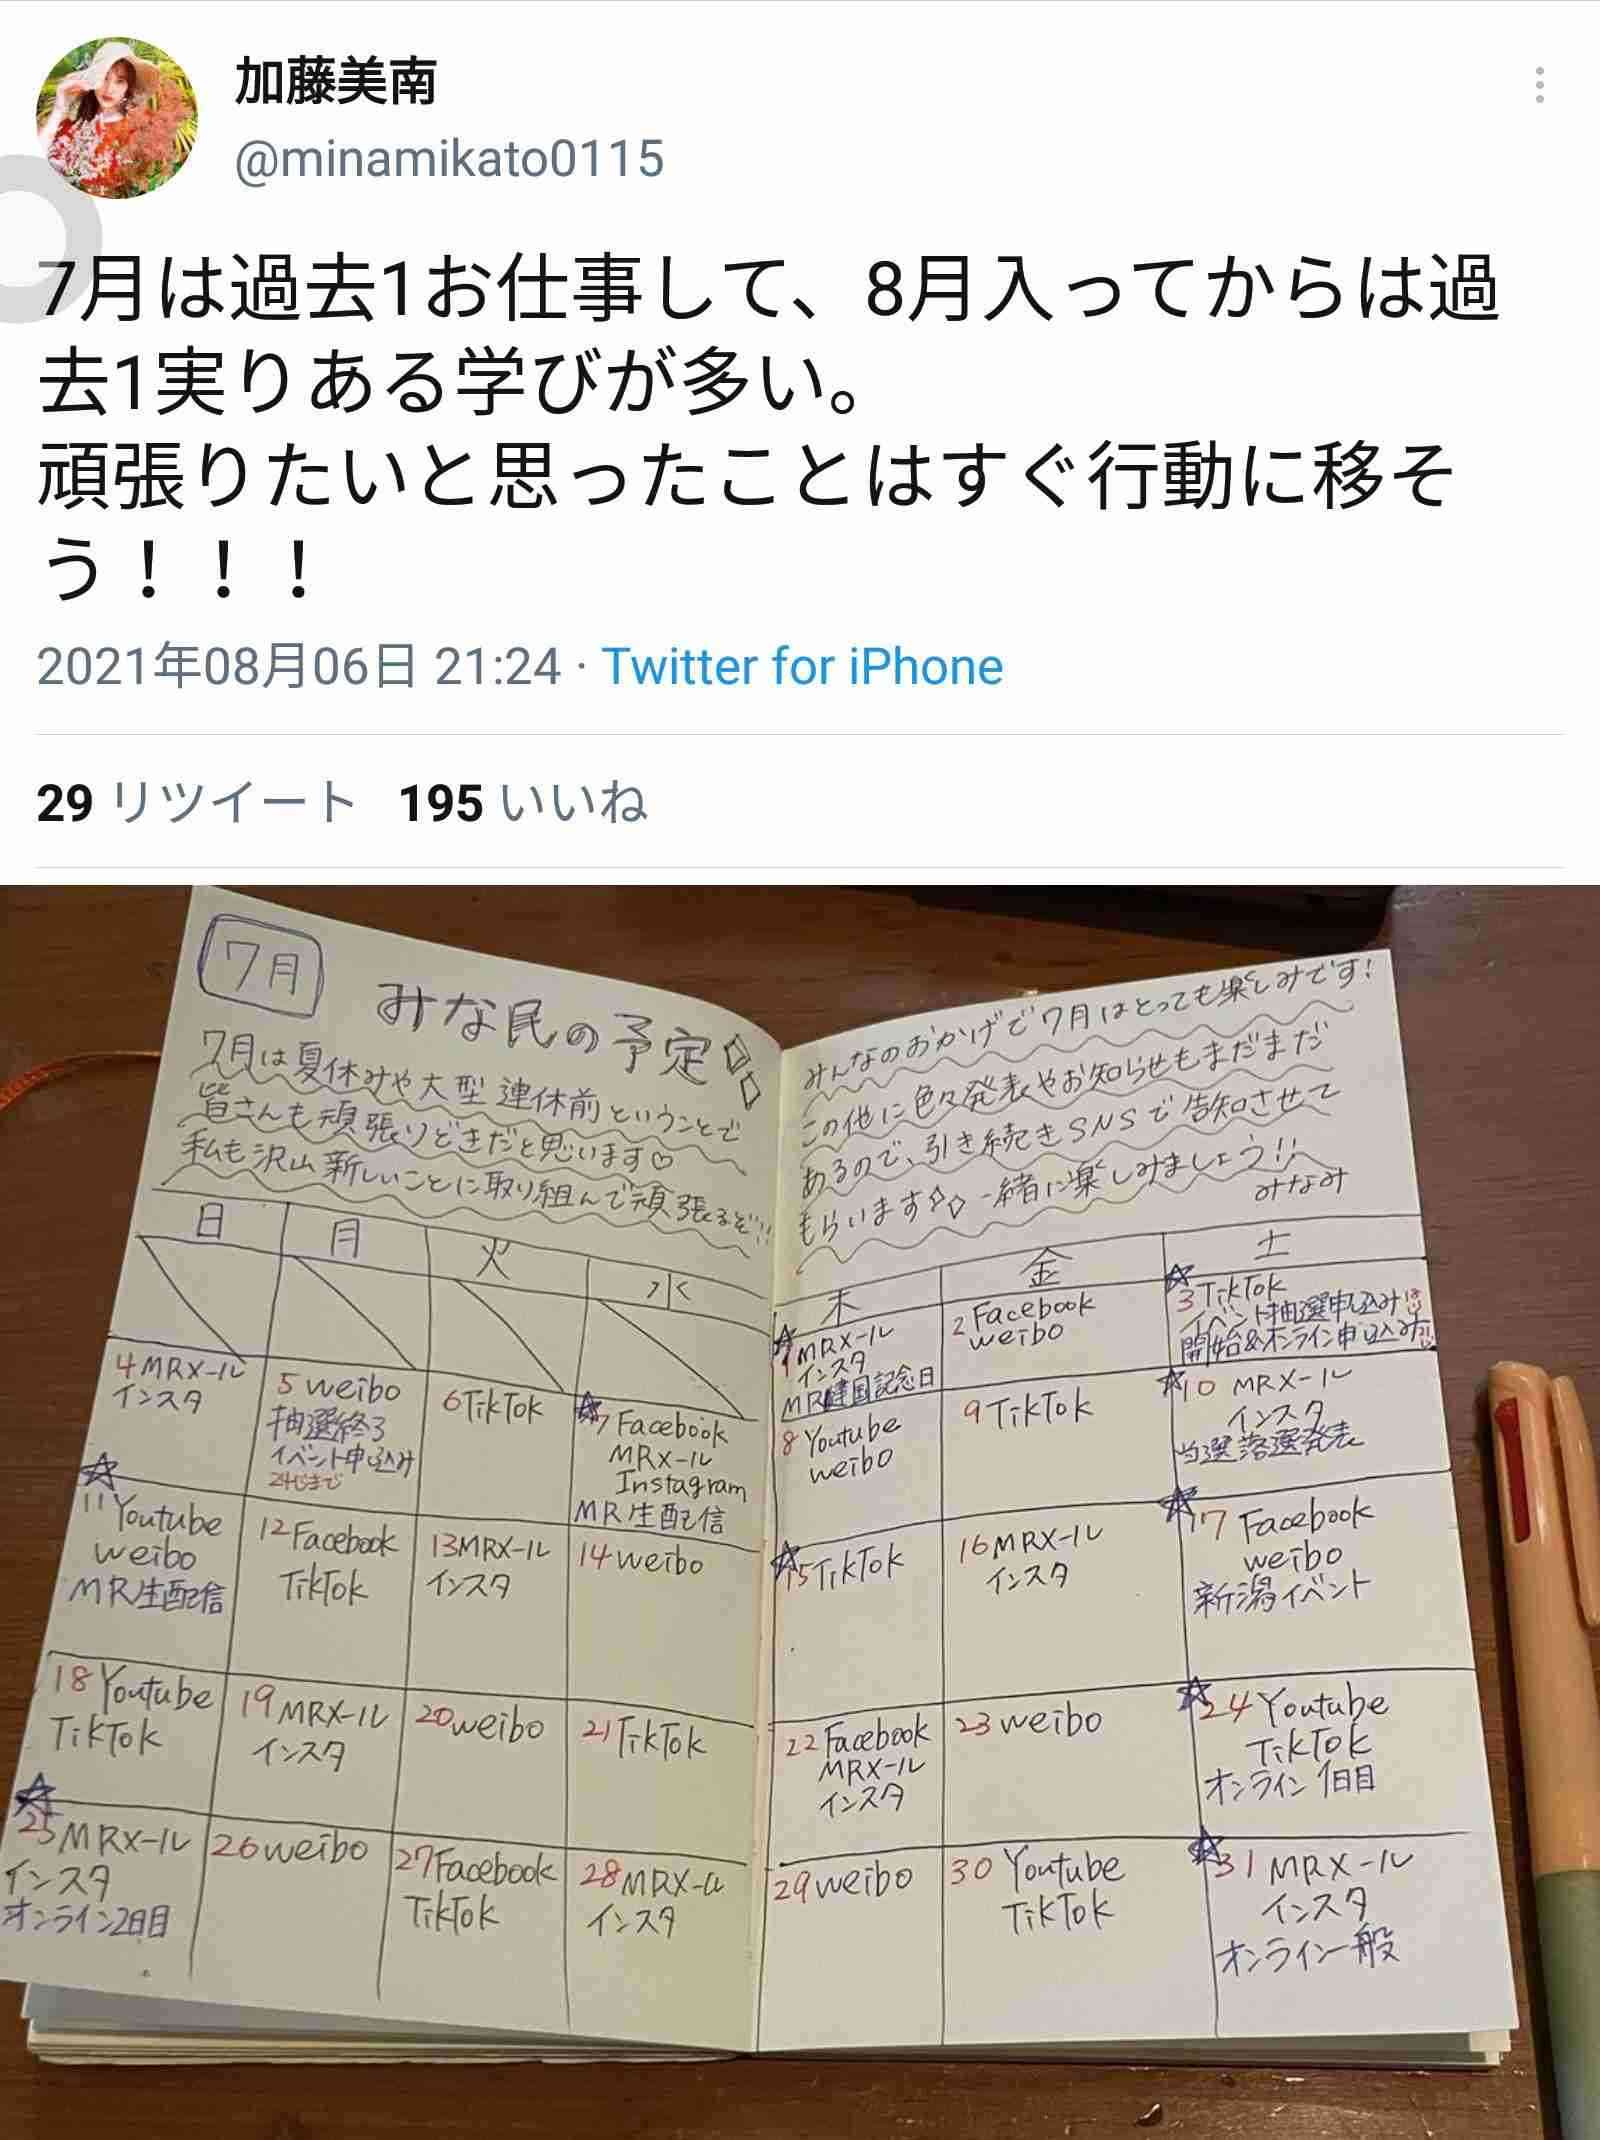 加藤美南
@minamikato0115
7月は過去1お仕事して、8月入ってからは過
去1実りある学びが多い。
頑張りたいと思ったことはすぐ行動に移そ
う！！！
2021年08月06日 21:24 · Twitter for iPhone
29 リツイート 195 いいね
7月
みな民の予定
7月は夏休みや大型連休前ということで
皆さんも頑張りどきだと思います♡
私も沢山新しいことに取り組んで頑張るぞ!!
みんなのおかげで7月はとっても楽しみです!
この他に色々発表やお知らせもまだまだ
あるので、引き続きSNSで告知させて
もらいます 一緒に楽しみましょう!!
みなみ
日 月 火 水 木 金 土
1 MRメール
インスタ
MR建国記念日
2 Facebook
weibo
3 TikTok
イベント抽選申し込み
開始&オンライン申し込み
4 MRメール
インスタ
5 weibo
抽選終了
イベント申し込み
24時まで
6 TikTok
7 Facebook
MRメール
Instagram
MR生配信
8 Youtube
weibo
9 TikTok
10 MRメール
インスタ
当選落選発表
11 Youtube
weibo
MR生配信
12 Facebook
TikTok
13 MRメール
インスタ
14 weibo
15 TikTok
16 MRメール
インスタ
17 Facebook
weibo
新潟イベント
18 Youtube
TikTok
19 MRメール
インスタ
20 weibo
21 TikTok
22 Facebook
MRメール
インスタ
23 weibo
24 Youtube
TikTok
オンライン1日目
25 MRメール
インスタ
オンライン2日目
26 weibo
27 Facebook
TikTok
28 MRメール
インスタ
29 weibo
30 Youtube
TikTok
31 MRメール
インスタ
オンライン一般